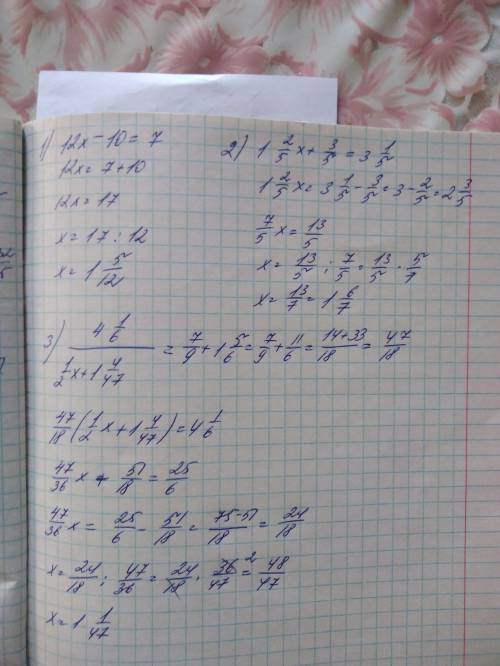 1) 12x - 10 = 7
12x = 7 + 10
12x = 17
x = 17 : 12
x = 1 5/12
2) 1 2/5 x + 3/5 = 3 1/5
1 2/5 x = 3 1/5 - 3/5 = 3 - 2/5 = 2 3/5
7/5 x = 13/5
x = 13/5 : 7/5 = 13/5 · 5/7
x = 13/7 = 1 6/7
3) 4 1/6 / (1/2 x + 1 4/47) = 7/9 + 1 5/6 = 7/9 + 11/6 = (14+33)/18 = 47/18
47/18 (1/2 x + 1 4/47) = 4 1/6
47/36 x + 51/18 = 25/6
47/36 x = 25/6 - 51/18 = (75-51)/18 = 24/18
x = 24/18 : 47/36 = 24/18 · 36/47 2 = 48/47
x = 1 1/47